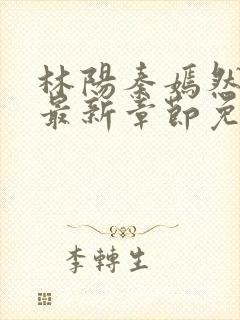 林陽秦嫣然
最新章節免
李轉生